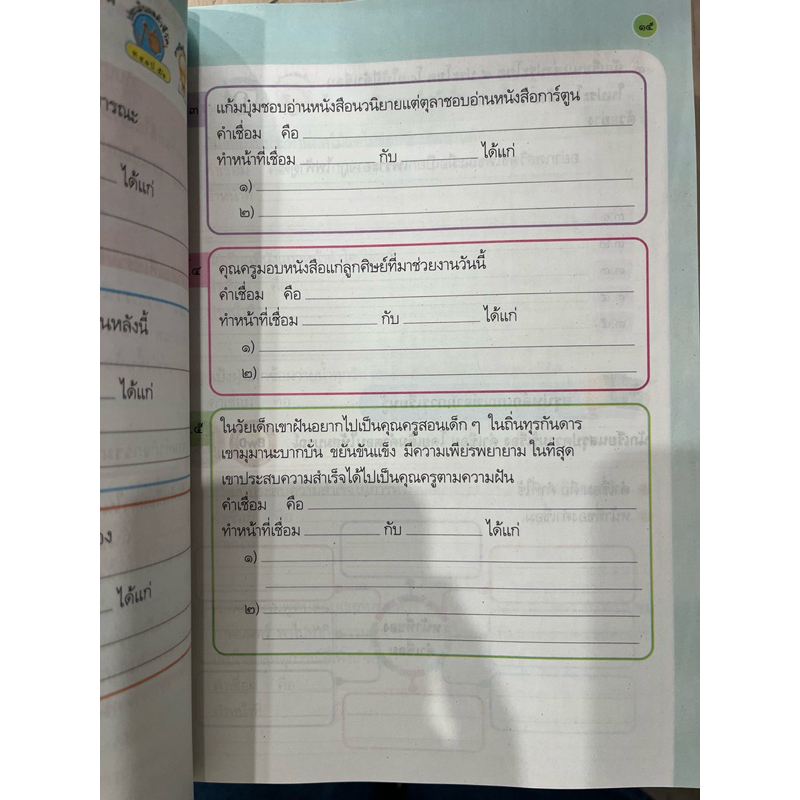 ๑๕
ารณะ
ได้แก่
นหลังนี้
ได้แก่
อง
ได้แก่
๓
แก้มบุ๋มชอบอ่านหนังสือนวนิยายแต่ตุลาชอบอ่านหนังสือการ์ตูน
คำเชื่อม คือ
ทำหน้าที่เชื่อม กับ ได้แก่
๑)
๒)
๔
คุณครูมอบหนังสือแก่ลูกศิษย์ที่มาช่วยงานวันนี้
คำเชื่อม คือ
ทำหน้าที่เชื่อม กับ ได้แก่
๑)
๒)
๕
ในวัยเด็กเขาฝันอยากไปเป็นคุณครูสอนเด็ก ๆ ในถิ่นทุรกันดาร
เขามุมานะบากบั่น ขยันขันแข็ง มีความเพียรพยายาม ในที่สุด
เขาประสบความสำเร็จได้ไปเป็นคุณครูตามความฝัน
คำเชื่อม คือ
ทำหน้าที่เชื่อม กับ ได้แก่
๑)
๒)